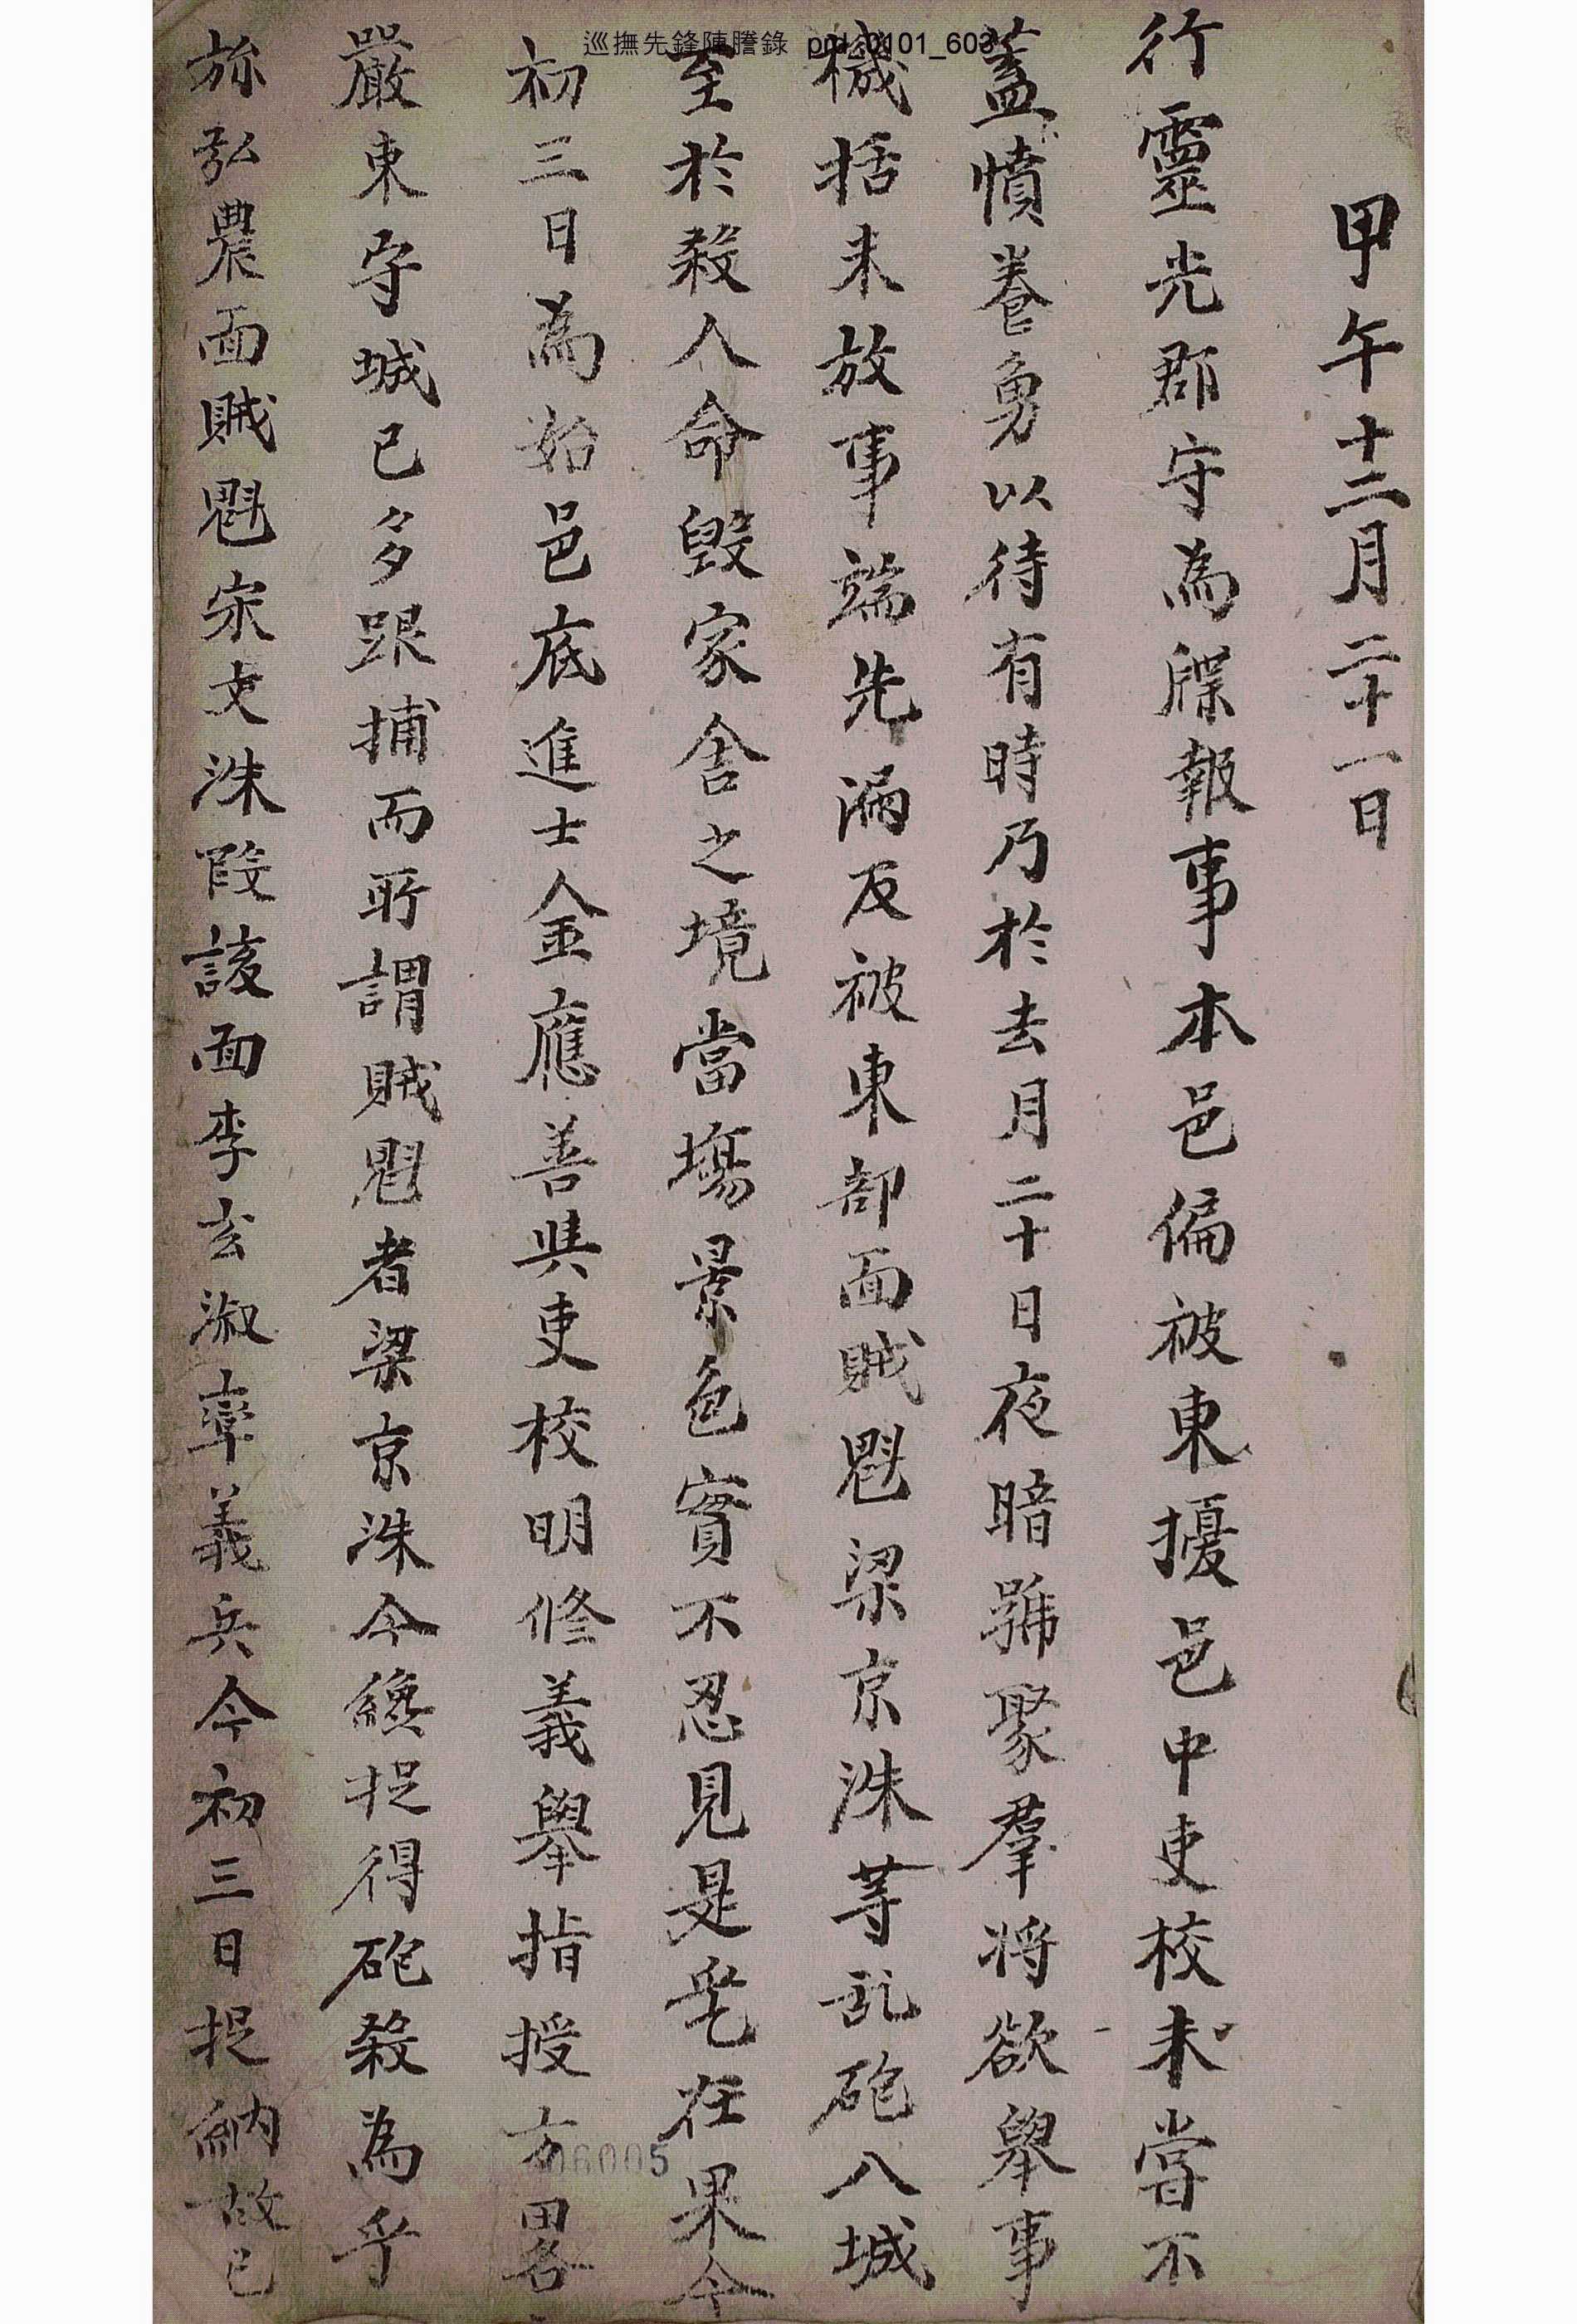 巡撫先鋒陳謄錄
甲午十二月二十一日
行靈光郡守為牒報事本邑偏被東擾邑中吏校未嘗不
蓋憤養勇以待有時乃於去月二十日夜暗號聚羣将欲舉事
機括未放事端先漏反被東部面賊魁梁京洙等乱砲入城
至於殺人命毁家舍之境當場景色實不忍見是乎在果今
初三日為始邑底進士金應善與吏校明修義舉指授方畧
嚴束守城已多々跟捕而所謂賊魁者梁京洙今纔捉得砲殺為乎
旀弘農面賊魁宋文洙段該面李玄淑率義兵今初三日捉納故已
06005